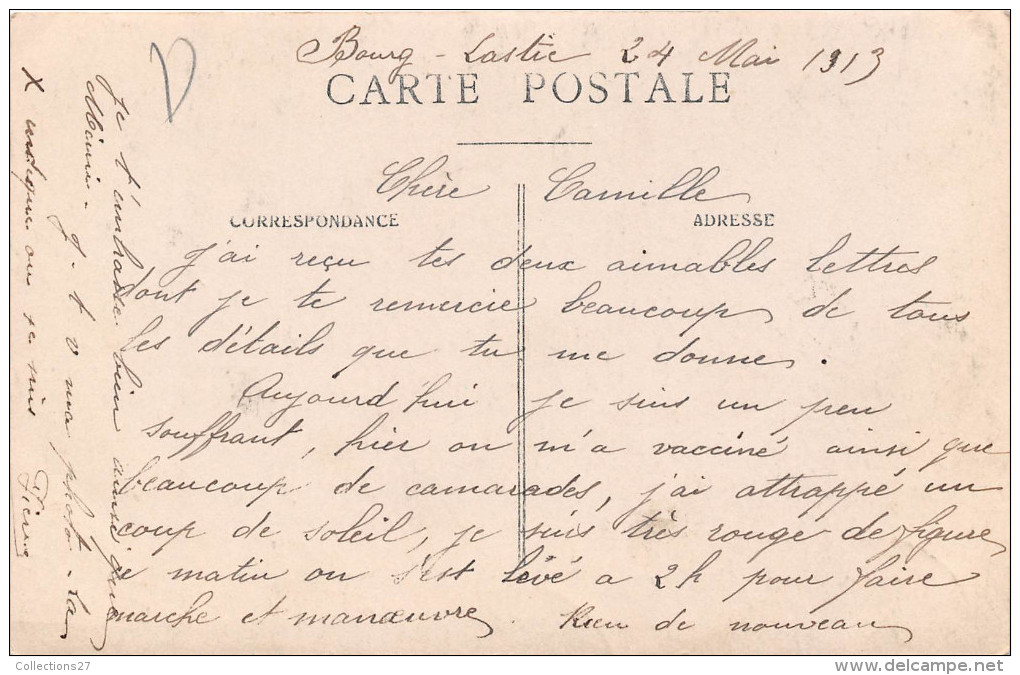 Bourg-Lastic 24 Mai 1913
CARTE POSTALE
Chère Camille
CORRESPONDANCE
ADRESSE
J'ai reçu tes deux aimables lettres
dont je te remercie beaucoup, de tous
les détails que tu me donne.
Aujourd'hui je suis un peu
souffrant, hier on m'a vacciné ainsi que
beaucoup de camarades, j'ai attrappé un
coup de soleil, je suis très rouge de figure,
ce matin on s'est levé a 2h pour faire
marche et manœuvre. Rien de nouveau
Je t'embrasse bien ainsi que
Mimi. J. t. v ma photo. La
X indique ou je suis
Pierre
Collections27
delcampe.net